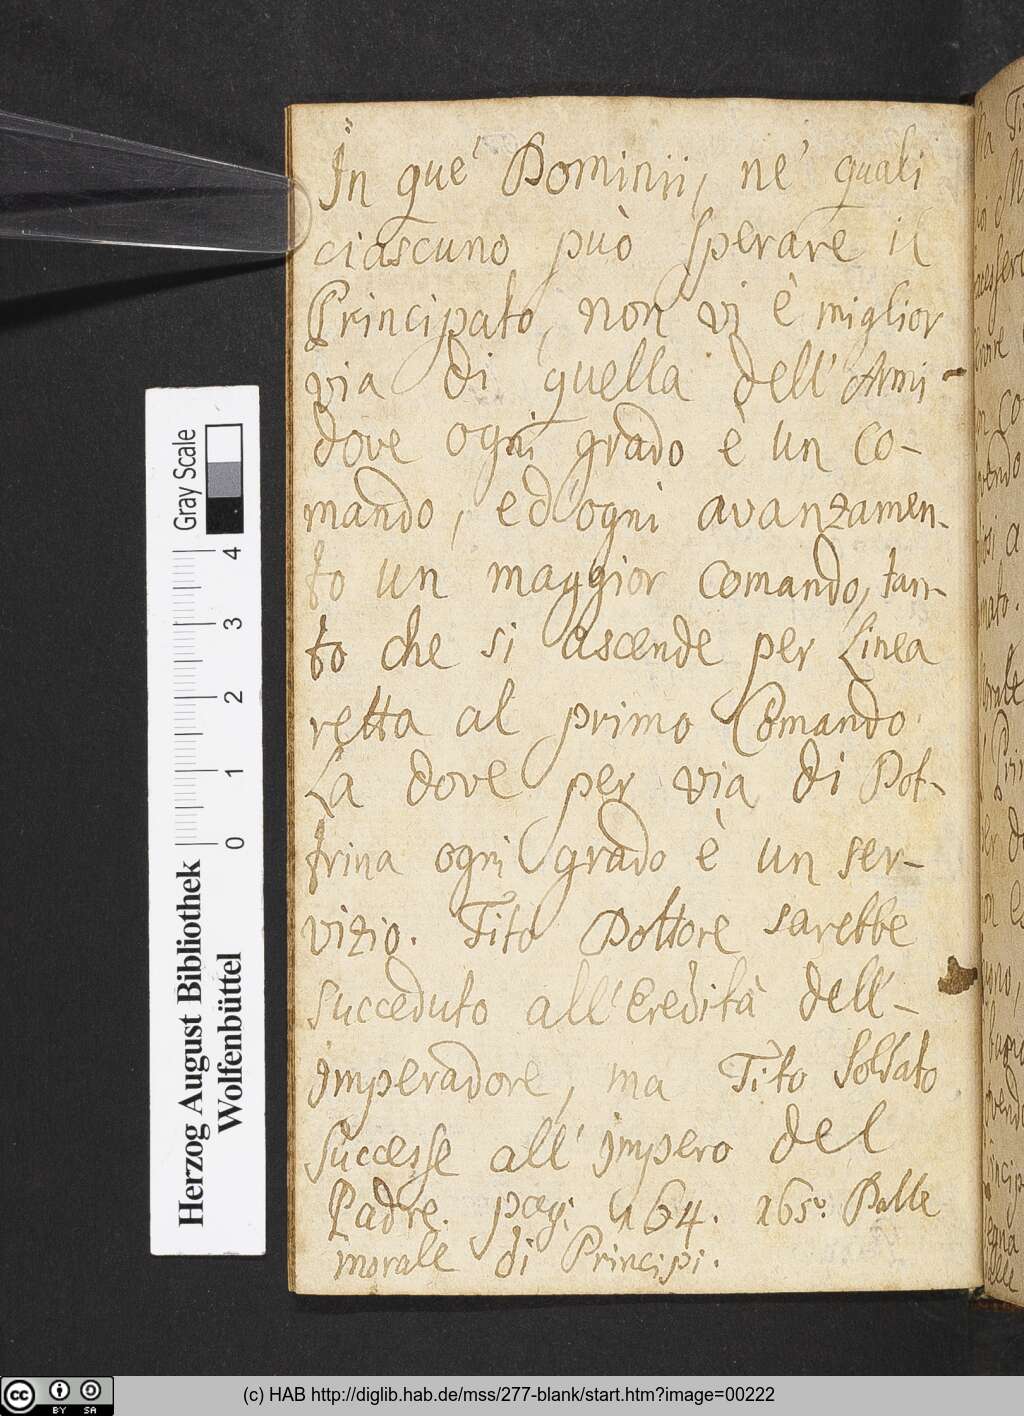 In que' Dominii, ne' quali
ciascuno può sperare il
Principato, non vi è miglior
via di quella dell' Armi -
dove ogni grado è un co-
mando, ed ogni avanzamen-
to un maggior comando, tan-
to che si ascende per Linea
retta al primo Comando
La dove per via di Dot-
trina ogni grado è un ser-
vizio. Tito Dottore sarebbe
succeduto all' Eredità dell' -
Imperadore, ma Tito Soldato
successe all' Impero del
Padre. pag: 164. 165. Delle
morale di Principi.
Gray Scale
0 1 2 3 4
Herzog August Bibliothek
Wolfenbüttel
cc BY SA
(c) HAB http://diglib.hab.de/mss/277-blank/start.htm?image=00222